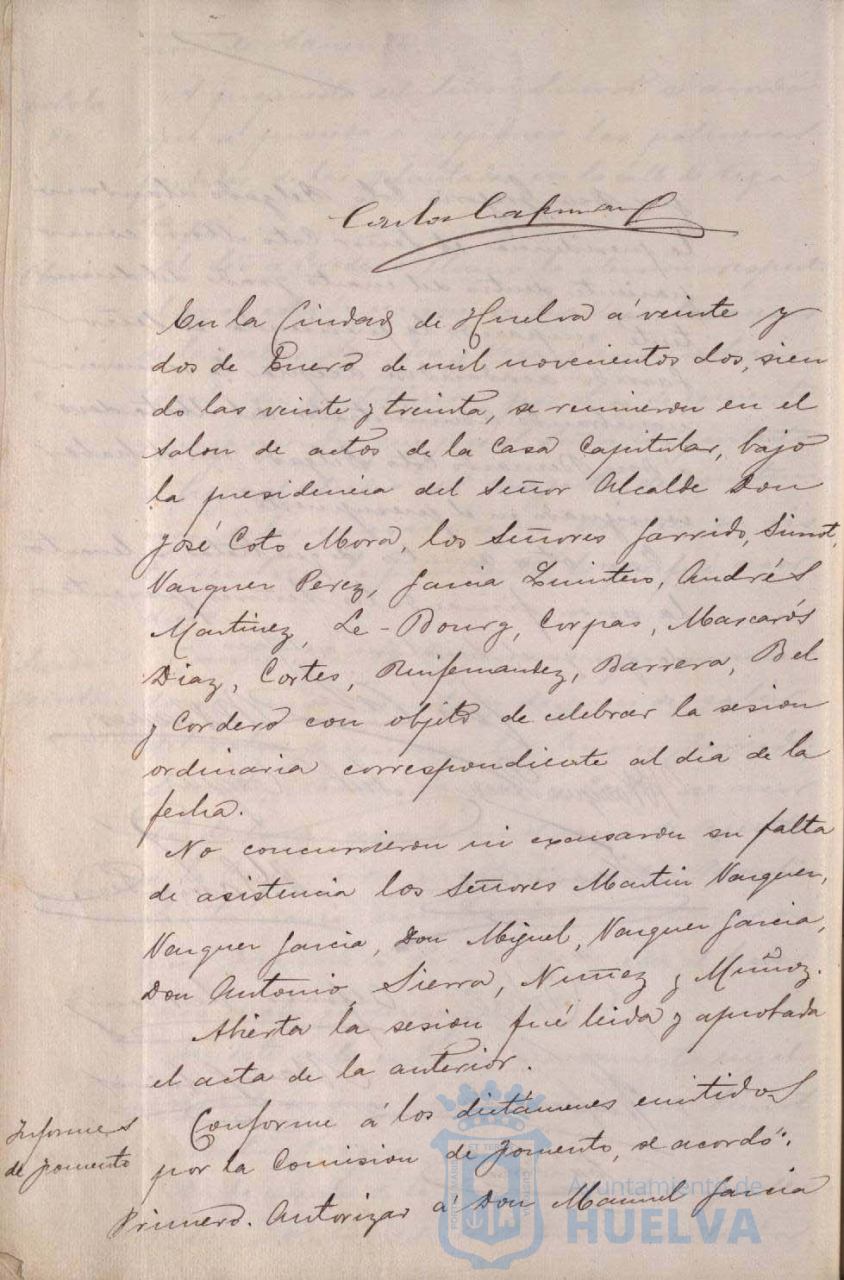 En la Ciudad de Huelva á veinte y
dos de Enero de mil novecientos dos, sien
do las veinte y treinta, se reunieron en el
Salon de actos de la Casa Capitular, bajo
la presidencia del Señor Alcalde Don
José Coto Mora, los Señores Garrido, Sunot,
Vazquez Perez, Garcia Quintero, Andrés
Martinez, Le-Bourg, Corpas, Mascarós
Diaz, Cortes, Ruifernandez, Barrera, Bel
y Cordero con objeto de celebrar la sesion
ordinaria correspondiente al dia de la
fecha.
No concurrieron ni excusaron su falta
de asistencia los Señores Martin Vazquez,
Vazquez Garcia, Don Miguel, Vazquez Garcia,
Don Antonio, Sierra, Nuñez y Muñoz.
Abierta la sesion fué leida y aprobada
el acta de la anterior.
Informes
de fomento
Conforme á los dictámenes emitidos
por la Comision de Fomento, se acordó:
Primero. Autorizar á Don Manuel Garcia
Ayuntamiento de
HUELVA